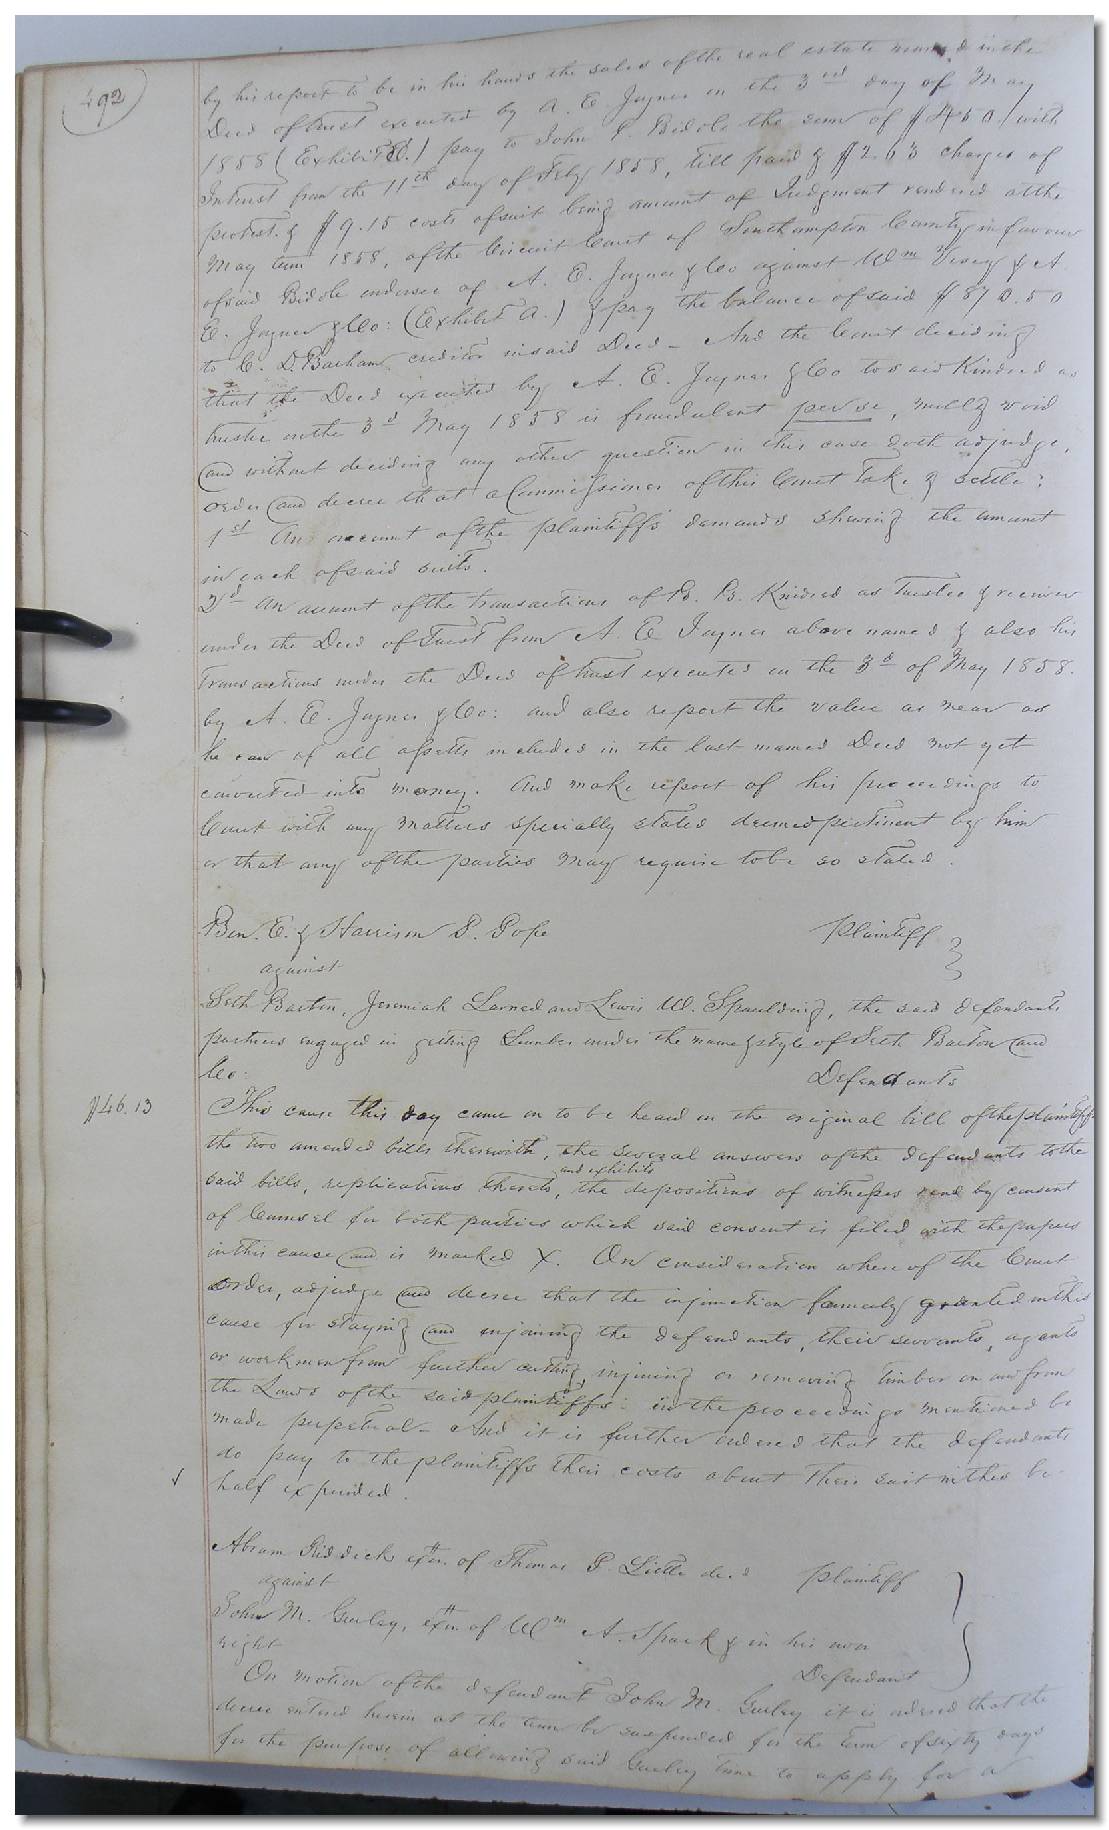 492
by his report to be in his hands the sales of the real estate named in the
Deed of trust executed by A. E. Joyner on the 3rd day of May
1858 (Exhibit C.) pay to John P. Bidole the sum of $450./ with
Interest from the 11th day of Feby 1858, till paid & $2.63 charges of
protest. & $9.15 costs of suit being amount of Judgment rendered at the
May term 1858, of the Circuit Court of Southampton County in favour
of said Bidole endorsee of A. E. Joyner & Co against Wm Vesey & A.
E. Joyner & Co: (Exhibit A.) & pay the balance of said $870.50
to C. D. Barham creditor in said Deed - And the Court deciding
that the Deed executed by A. E. Joyner & Co to said Kindred as
trustee on the 3d May 1858 is fraudulent per se, null & void
and without deciding any other question in this case doth adjudge,
order and decree that a Commissioner of this Court take & settle:
1st An account of the plaintiffs demands shewing the amount
in each of said suits.
2d An account of the transactions of B. B. Kindred as trustee & receiver
under the Deed of Trust from A. E Joyner above named & also his
transactions under the Deed of trust executed on the 3d of May 1858.
by A. E. Joyner & Co: and also report the value as near as
he can of all assetts included in the last named Deed not yet
converted into money. And make report of his proceedings to
Court with any matters specially stated deemed pertinent by him
or that any of the parties may require to be so stated.
Ben. E. & Harrison P. Pope Plaintiff
against
Seth Barton, Jeremiah Larned and Lewis W. Spaulding, the said defendants
partners engaged in getting Lumber under the name & style of Seth Barton and
Co: Defendants
$46.13
This cause this day came on to be heard on the original bill of the plaintiffs
the two amended bills therewith, the several answers of the defendants to the
and exhibits
said bills, replications thereto, the depositions of witnesses and by consent
of Counsel for both parties which said consent is filed with the papers
in this cause and is marked X. On consideration where of the Court
order, adjudge and decree that the injunction formerly granted in this
cause for staying and enjoining the defendants, their servants, agents
or workmen from further cutting, injuring or removing timber on and from
the Lands of the said plaintiffs: in the proceedings mentioned be
made perpetual - And it is further ordered that the defendants
do pay to the plaintiffs their costs about their suit in this be-
half expended.
Abram Riddick exr. of Thomas P. Little decd Plaintiff
against
John M. Gurley, exr. of Wm A. Spark & in his own
right Defendant
On motion of the defendant John M. Gurley it is ordered that the
decree entered herein at the term be suspended for the term of sixty days
for the purpose of allowing said Gurley time to apply for a